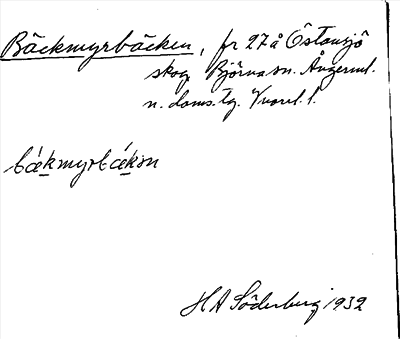 Bäckmyrbäcken, fr 27 å Östansjö
skog Björna sn. Ångerml.
n. doms. tg.
bækmyrbækən
H A Söderberg 1932